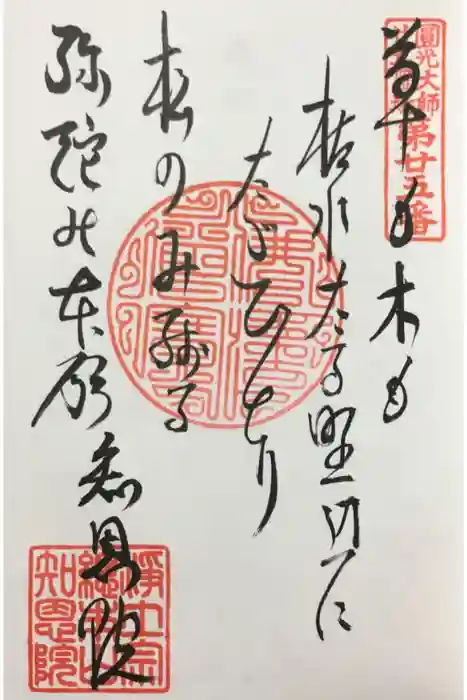 圓光大師
第廿五番
草も木も
枯れたる野辺に
たゞひとり
松のみ残る
弥陀の本願 知恩院
浄土宗
總本山
知恩院